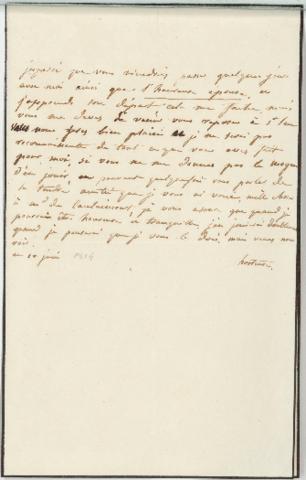 j'espérais que vous viendriez passer quelques jours
avec moi ainsi que l'heureuse épouse, et
j'apprends son départ cela me fache, mais
vous me devez de venir vous reposer à St Leu
vous nous ferez bien plaisir et je ne serai pas
reconnaissante de tout ce que vous avez fait
pour moi, si vous ne me donnez pas le moyen
d'en jouir en pouvant quelquefois vous parler de
la tendre amitié que je vous ai vouée, mille choses
à Md de Caulaincourt, je vous assure que quand je
pourrai être heureuse et tranquille, j'en jouirai doublement
quand je penserai que je vous le dois, mais venez nous
voir
ce 10 juin 1814
hortense